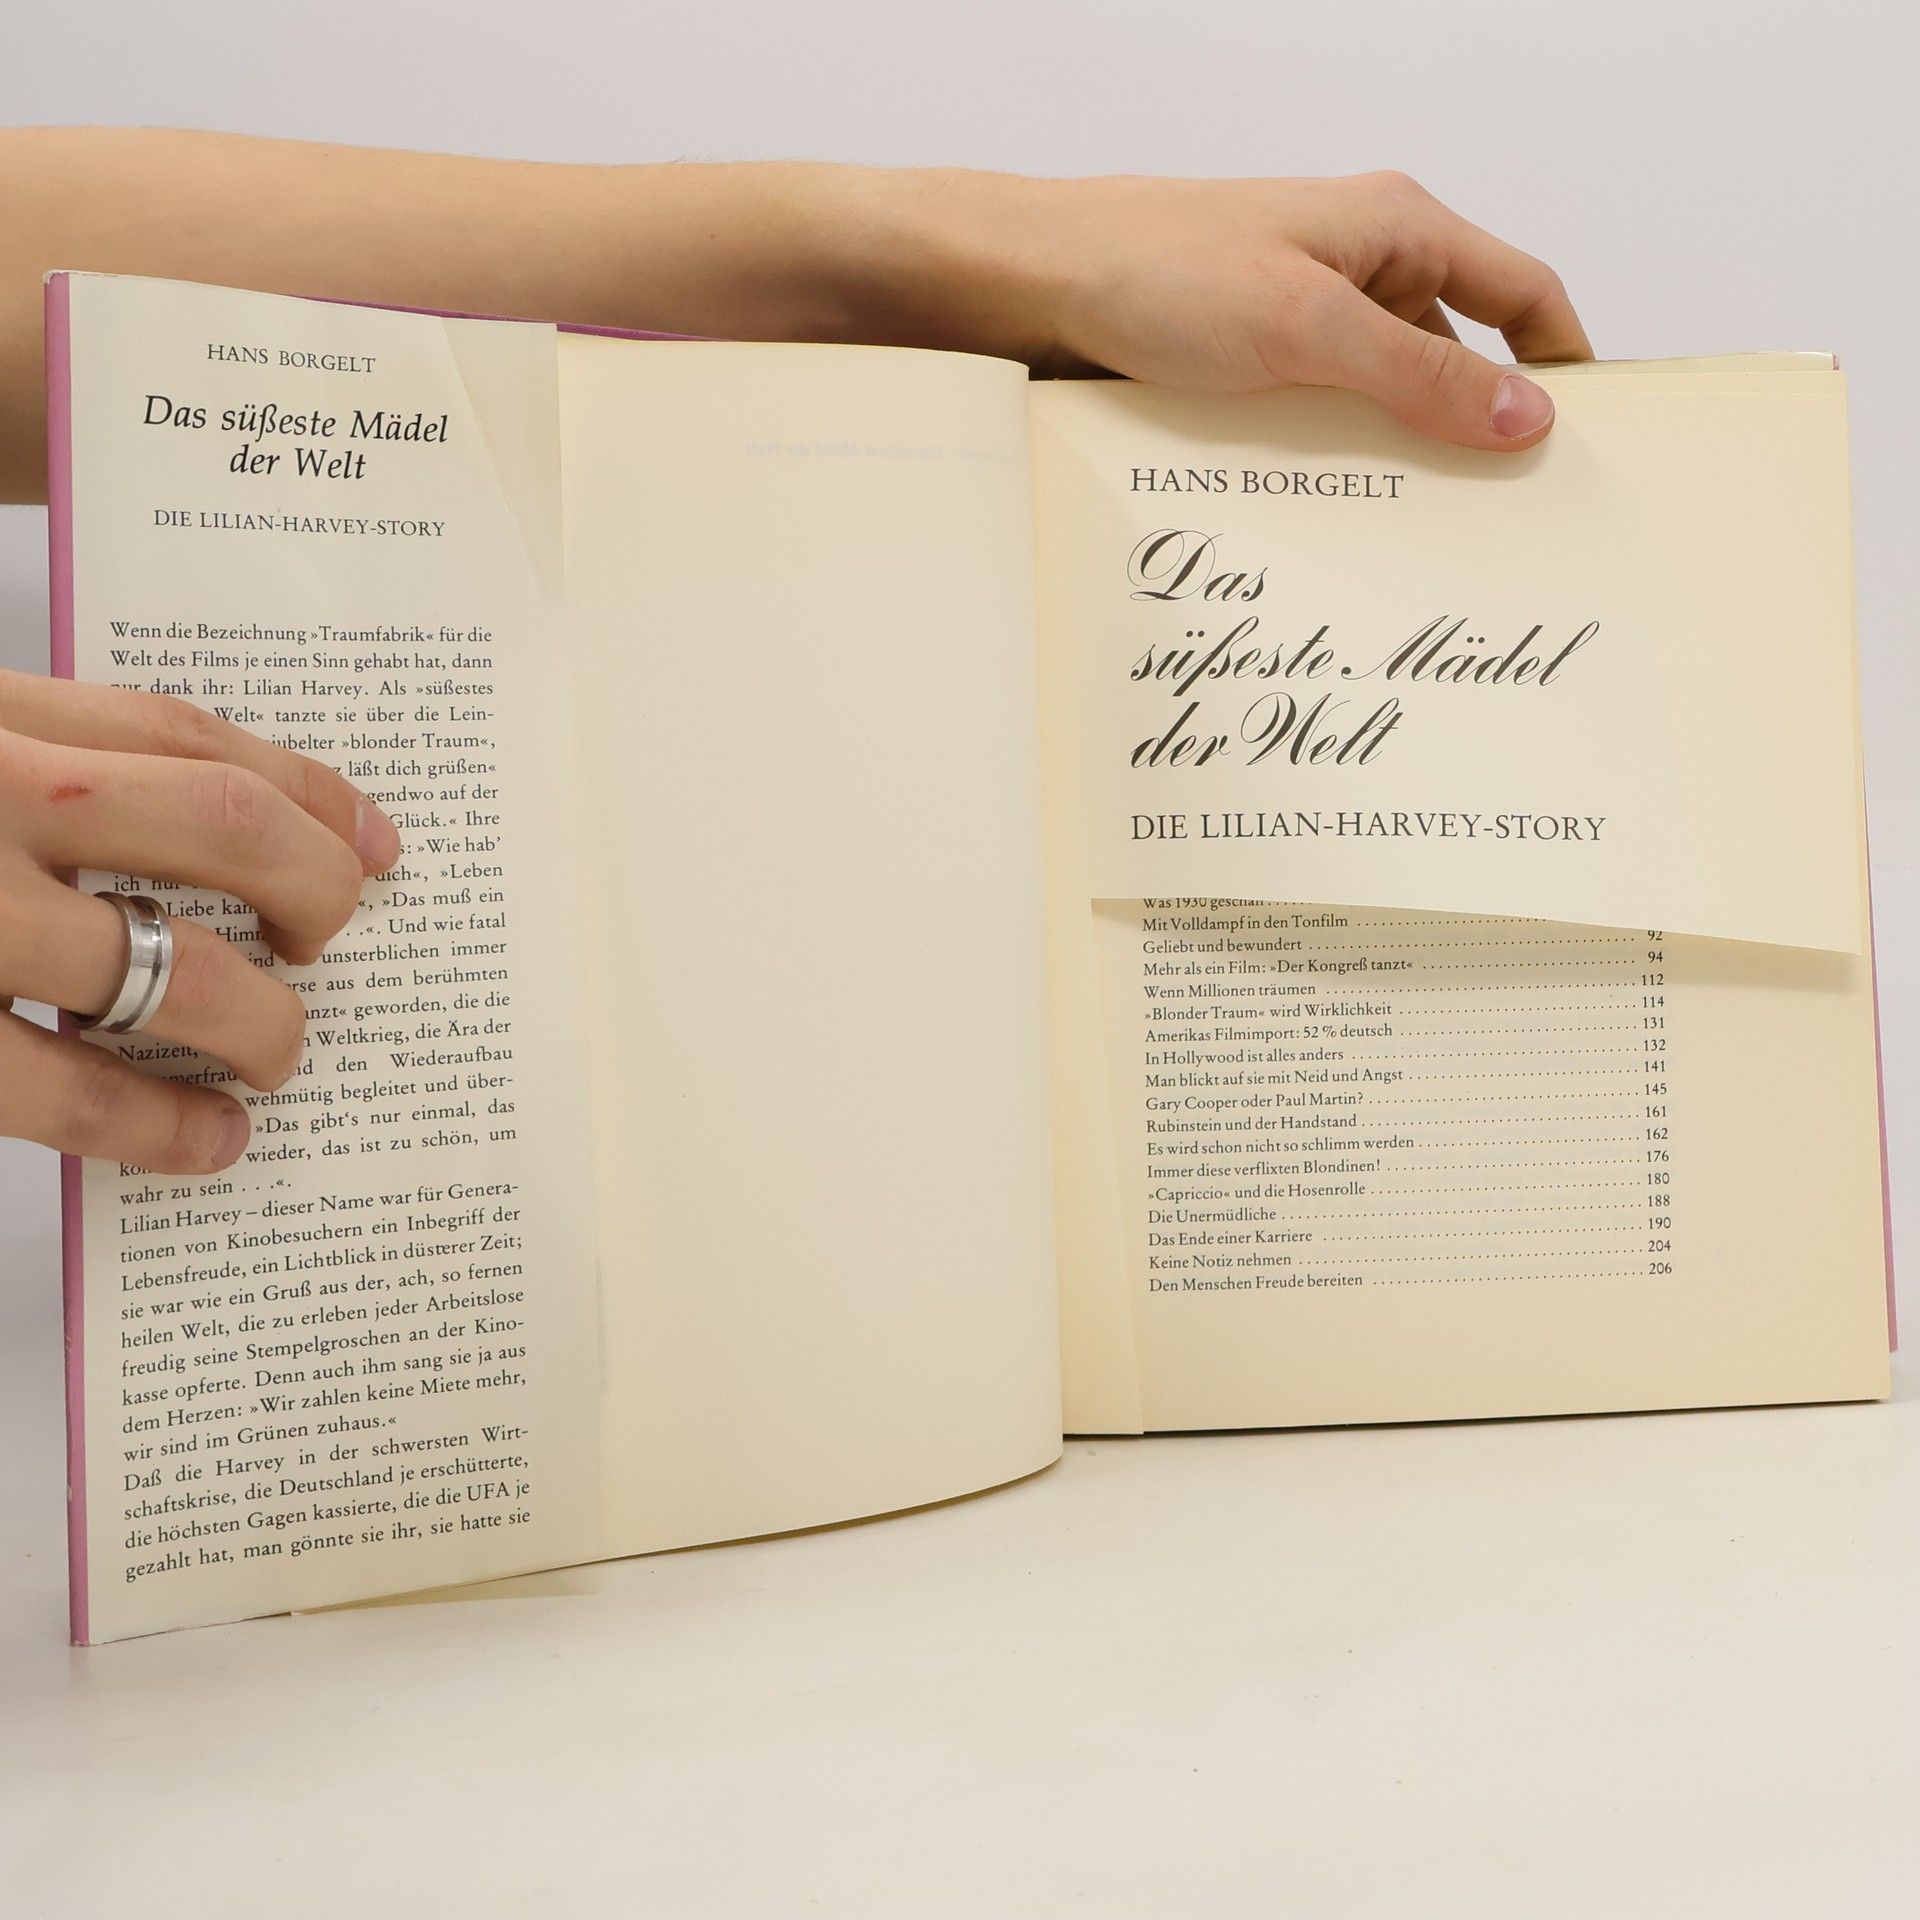 HANS BORGELT
Das süßeste Mädel
der Welt
DIE LILIAN-HARVEY-STORY
Wenn die Bezeichnung »Traumfabrik« für die
Welt des Films je einen Sinn gehabt hat, dann
nur dank ihr: Lilian Harvey. Als »süßestes
Welt« tanzte sie über die Lein-
»blonder Traum«,
läßt dich grüßen«
auf der
Glück.« Ihre
»Wie hab'
ich dich«, »Leben
Liebe »Das muß ein
. .«. Und wie fatal
unsterblichen immer
aus dem berühmten
geworden, die die
Weltkrieg, die Ära der
Nazizeit, den Wiederaufbau
wehmütig begleitet und über-
»Das gibt's nur einmal, das
wieder, das ist zu schön, um
wahr zu sein . . .«.
Lilian Harvey – dieser Name war für Genera-
tionen von Kinobesuchern ein Inbegriff der
Lebensfreude, ein Lichtblick in düsterer Zeit;
sie war wie ein Gruß aus der, ach, so fernen
heilen Welt, die zu erleben jeder Arbeitslose
freudig seine Stempelgroschen an der Kino-
kasse opferte. Denn auch ihm sang sie ja aus
dem Herzen: »Wir zahlen keine Miete mehr,
wir sind im Grünen zuhaus.«
Daß die Harvey in der schwersten Wirt-
schaftskrise, die Deutschland je erschütterte,
die höchsten Gagen kassierte, die die UFA je
gezahlt hat, man gönnte sie ihr, sie hatte sie
HANS BORGELT
Das
süßeste Mädel
der Welt
DIE LILIAN-HARVEY-STORY
Was 1930 geschah
Mit Volldampf in den Tonfilm
Geliebt und bewundert 92
Mehr als ein Film: »Der Kongreß tanzt« 94
Wenn Millionen träumen 112
»Blonder Traum« wird Wirklichkeit 114
Amerikas Filmimport: 52 % deutsch 131
In Hollywood ist alles anders 132
Man blickt auf sie mit Neid und Angst 141
Gary Cooper oder Paul Martin? 145
Rubinstein und der Handstand 161
Es wird schon nicht so schlimm werden 162
Immer diese verflixten Blondinen! 176
»Capriccio« und die Hosenrolle 180
Die Unermüdliche 188
Das Ende einer Karriere 190
Keine Notiz nehmen 204
Den Menschen Freude bereiten 206